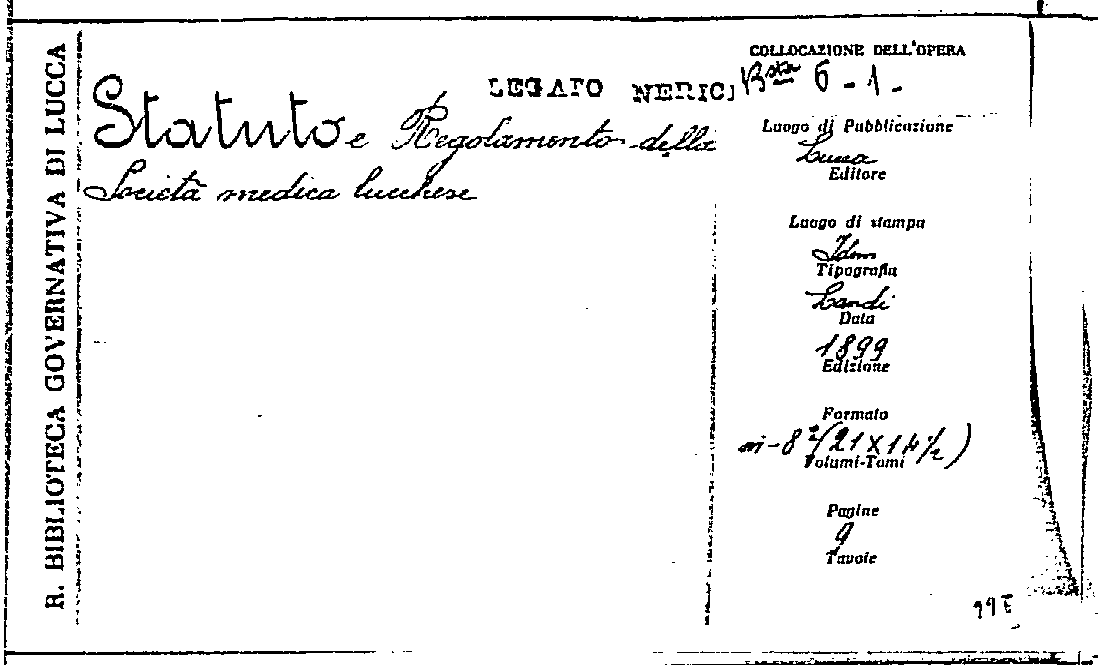 R. BIBLIOTECA GOVERNATIVA DI LUCCA
LEGATO NERICI
Statuto e Regolamento della
Società medica lucchese
COLLOCAZIONE DELL'OPERA
Bsta 6-1-
Luogo di Pubblicazione
Lucca
Editore
Luogo di stampa
Idem
Tipografia
Landi
Data
1899
Edizione
Formato
in-8° (21 X 14 1/2)
Volumi-Tomi
Pagine
9
Tavole